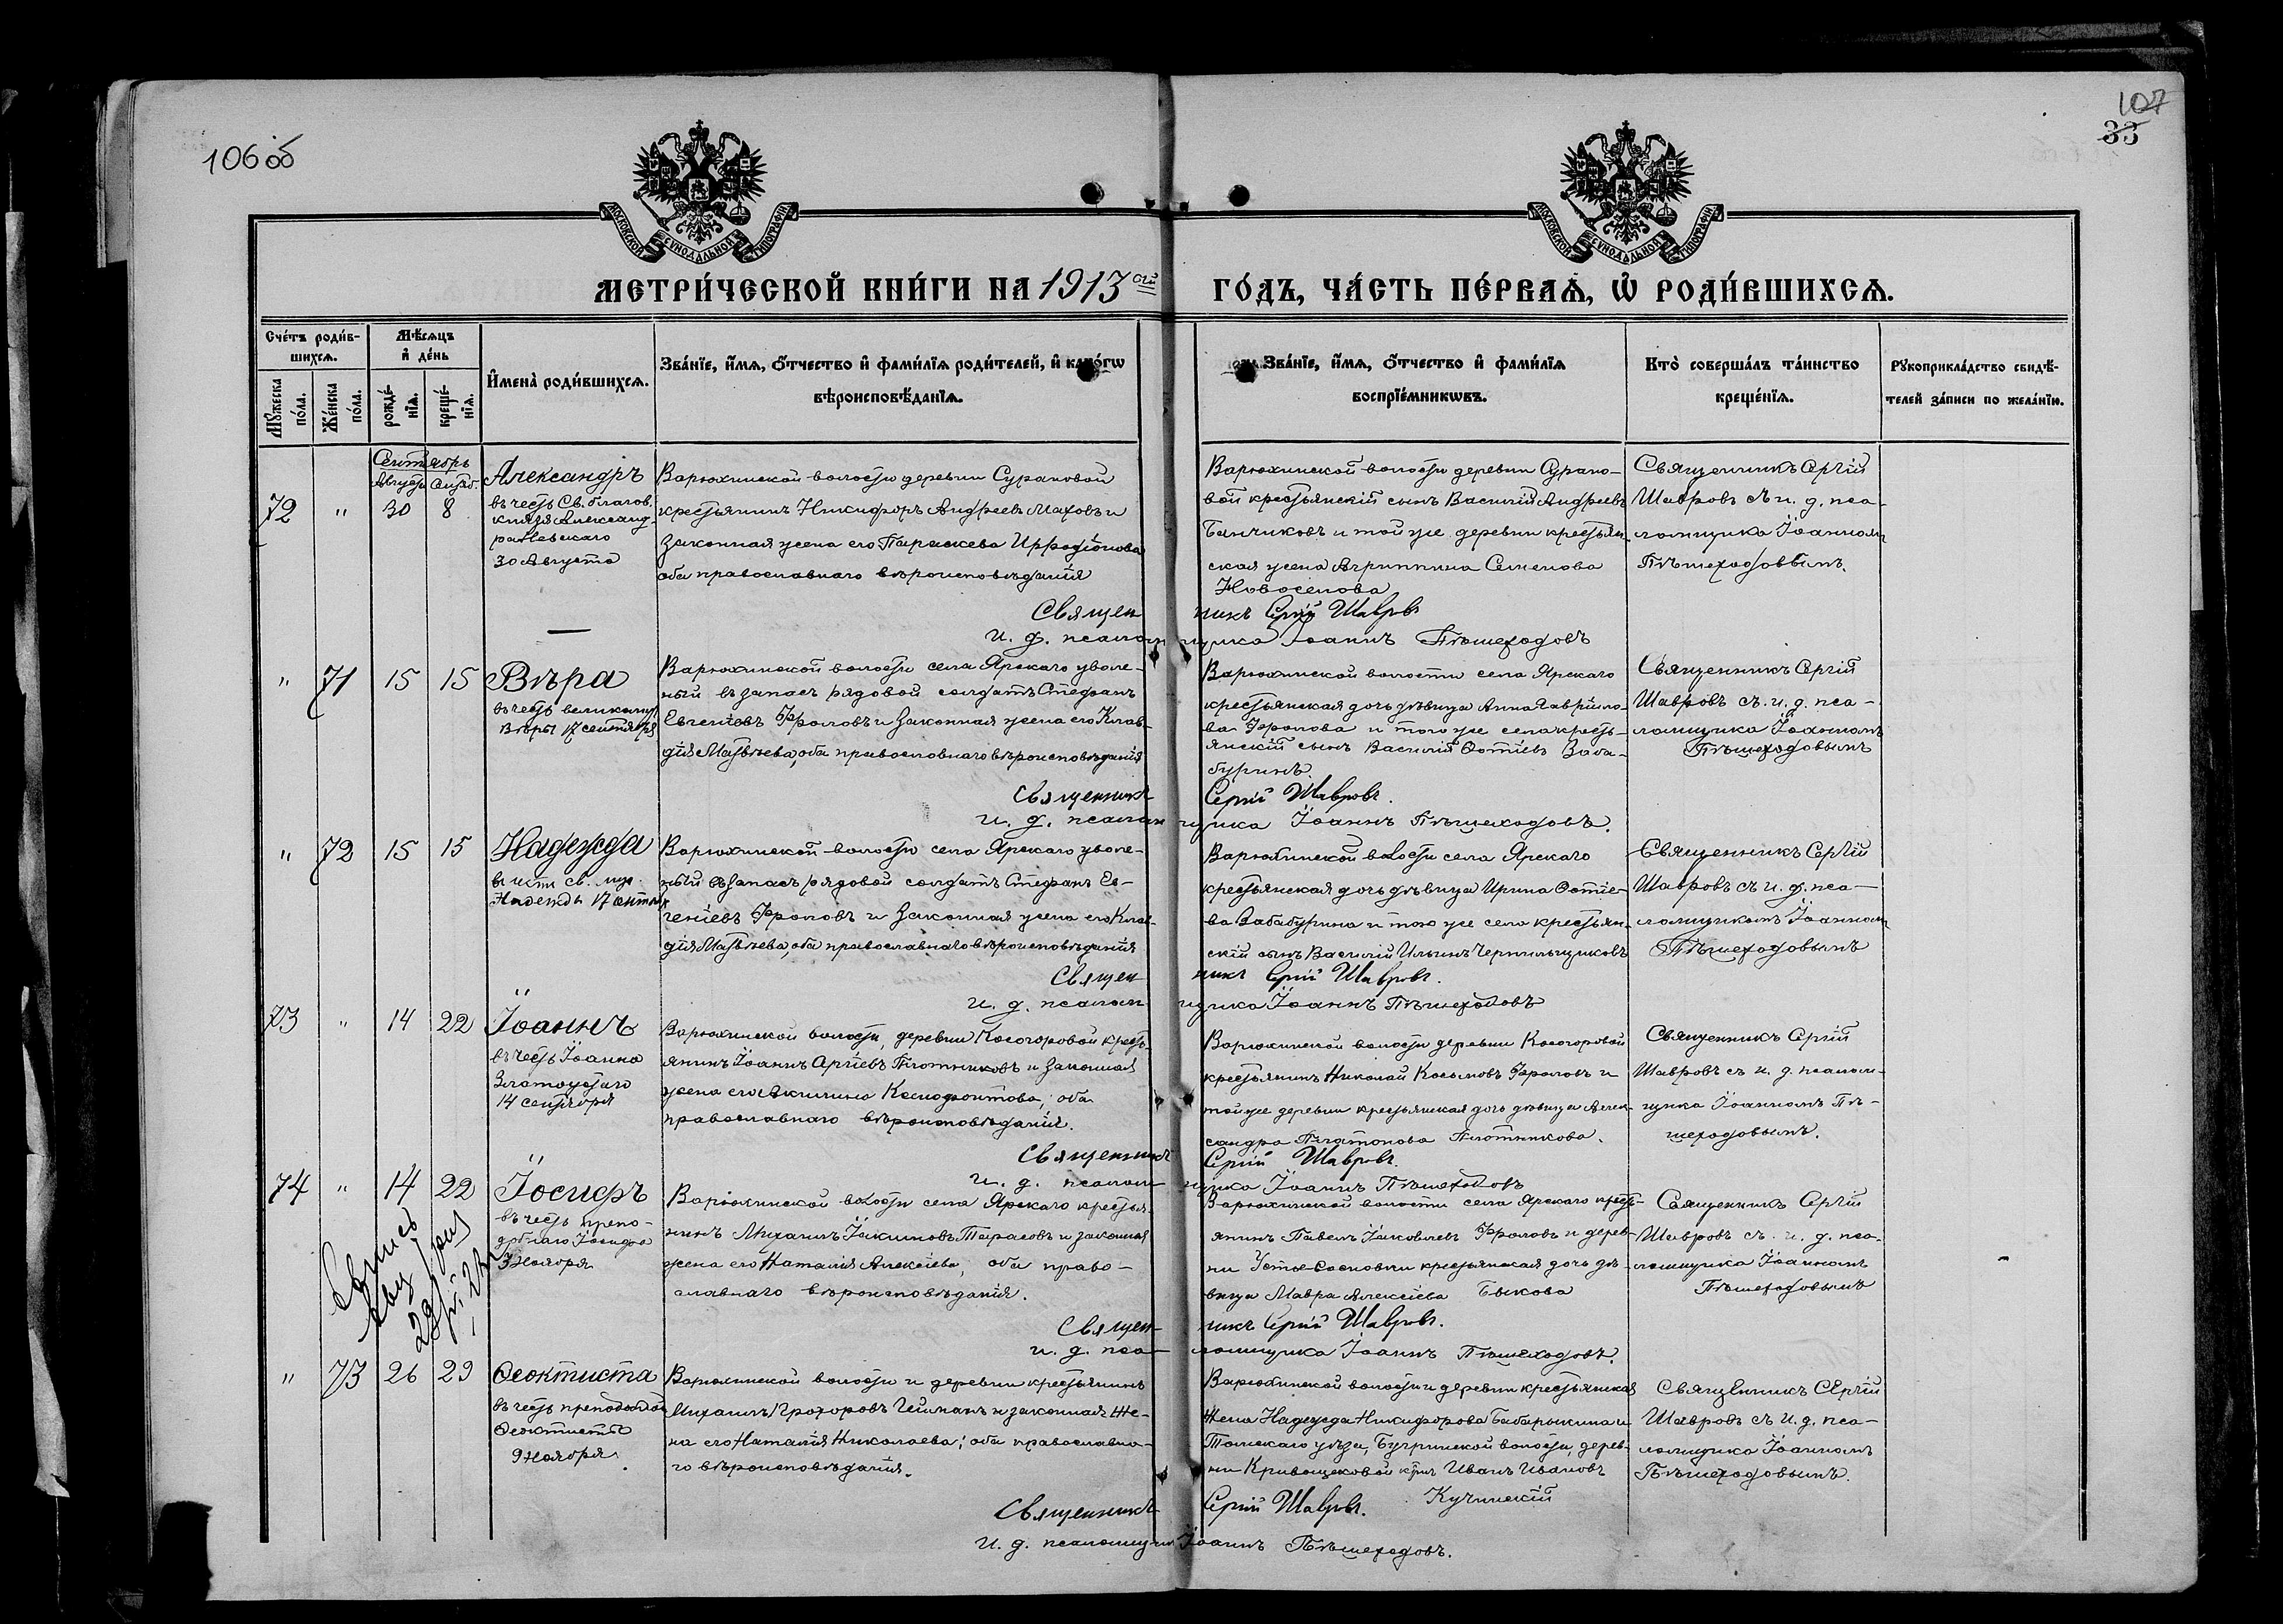 106 об
107
33
МОСКОВСКОЙ СѴНОДАЛЬНОЙ ТИПОГРАФІИ
МОСКОВСКОЙ СѴНОДАЛЬНОЙ ТИПОГРАФІИ
МЕТРИ́ЧЕСКОЙ КНИ́ГИ НА 1913 ой ГО́ДЪ, ЧА́СТЬ ПЕ́РВАѦ, Ѡ҆ РОДИ́ВШИХСѦ.
Сче́тъ роди́в-
шихсѧ.
Мѣ́сѧцъ
и҆ де́нь
Мꙋ́жеска
по́ла.
Же́нска
по́ла.
рожде́-
нїѧ.
креще́-
нїѧ.
И҆мена̀ роди́вшихсѧ.
Зва́нїе, и҆́мѧ, ѻ҆́тчество и҆ фами́лїѧ роди́телей, и҆ како́гѡ
вѣроисповѣ́данїѧ.
Зва́нїе, и҆́мѧ, ѻ҆́тчество и҆ фами́лїѧ
воспрїе́мникѡвъ.
Кто̀ соверша́лъ та́инство
креще́нїѧ.
Рꙋкоприкла́дство свидѣ́-
телей за́писи по жела́нїю.
Сентябрь
Августъ Сентяб.
72 " 30 8
Александръ
въ честь Св. благов.
князя Александ-
ра Невскаго
30 Августа
Варюхинской волости деревни Сурановой
крестьянинъ Никифоръ Андреевъ Маховъ и
законная жена его Параскева Иррадіонова
оба православнаго вѣроисповѣданія
Варюхинской волости деревни Сурано-
вой крестьянскій сынъ Василій Андреевъ
Банчиковъ и той же деревни крестьян-
ская жена Агриппина Семенова
Новоселова
Священникъ Сергій
Шавровъ съ и. д. пса-
ломщика Іоанномъ
Пѣшеходовымъ.
Священникъ Сергій Шавровъ
и. д. псаломщика Іоаннъ Пѣшеходовъ
" 71 15 15
Вѣра
въ честь великомуч.
Вѣры 17 сентября
Варюхинской волости села Ярскаго уволе-
ный въ запасъ рядовой солдатъ Стефанъ
Евгеніевъ Фроловъ и законная жена его Клав-
дія Матвѣева, оба православнаго вѣроисповѣданія
Варюхинской волости села Ярскаго
крестьянская дочь дѣвица Анна Гаврило-
ва Фролова и того же села кресть-
янскій сынъ Василій Ѳотіевъ Заба-
буринъ.
Священникъ Сергій
Шавровъ съ. и. д. пса-
ломщика Іоанномъ
Пѣшеходовымъ
Священникъ Сергій Шавровъ.
и. д. псаломщика Іоаннъ Пѣшеходовъ.
" 72 15 15
Надежда
въ честь св. муч.
Надежды 17 сентяб.
Варюхинской волости села Ярскаго уволе-
ный въ запасъ рядовой солдатъ Стефанъ Ев-
геніевъ Фроловъ и законная жена его Клав-
дія Матвѣева, оба православнаго вѣроисповѣданія
Варюхинской волости села Ярскаго
крестьянская дочь дѣвица Ирина Ѳотіе-
ва Забабурина и того же села крестьян-
скій сынъ Василій Ильинъ Чернильщиковъ
Священникъ Сергій
Шавровъ съ и. д. пса-
ломщикомъ Іоанномъ
Пѣшеходовымъ
Священникъ Сергій Шавровъ.
и. д. псаломщика Іоаннъ Пѣшеходовъ
73 " 14 22
Іоаннъ
въ честь Іоанна
Златоустаго
14 сентября
Варюхинской волости, деревни Косогоровой кресть-
янинъ Іоаннъ Аргіевъ Плотниковъ и законная
жена его Акилина Ксенофонтова, оба
православнаго вѣроисповѣданія.
Варюхинской волости деревни Косогоровой
крестьянинъ Николай Косьмовъ Фроловъ и
той же деревни крестьянская дочь дѣвица Алек-
сандра Платонова Плотникова.
Священникъ Сергій
Шавровъ съ и. д. псалом-
щика Іоанномъ Пѣ-
шеходовымъ.
Священникъ Сергій Шавровъ.
и. д. псаломщика Іоаннъ Пѣшеходовъ
74 " 14 22
Іосифъ
въ честь препо-
добнаго Іосифа
3 Ноября
Варюхинской волости села Ярскаго крестья-
нинъ Михаилъ Іакимовъ Тарасовъ и законная
жена его Наталія Алексіева, оба право-
славнаго вѣроисповѣданія.
Варюхинской волости села Ярскаго кресть-
янинъ Павелъ Іаковлевъ Фроловъ и дерев-
ни Усть-Сосновки крестьянская дочь дѣ-
вица Мавра Алексіева Быкова
Священникъ Сергій
Шавровъ съ. и. д. пса-
ломщика Іоанномъ
Пѣшеходовымъ
Священникъ Сергій Шавровъ.
и. д. псаломщика Іоаннъ Пѣшеходовъ.
" 73 26 29
Ѳеоктиста
въ честь преподобной
Ѳеоктисты
9 Ноября
Варюхинской волости и деревни крестьянинъ
Михаилъ Прохоровъ и законная же-
на его Наталія Николаева; оба православна-
го вѣроисповѣданія.
Варюхинской волости и деревни крестьянская
жена Надежда Никифорова Бабарыкина и
Томскаго уѣзда, волости, дерев-
ни Кривощековой Иванъ Ивановъ
Кучинскій
Священникъ Сергій
Шавровъ съ и. д. пса-
ломщика Іоанномъ
Пѣшеходовымъ.
Священникъ Сергій Шавровъ.
и. д. псаломщика Іоаннъ Пѣшеходовъ.